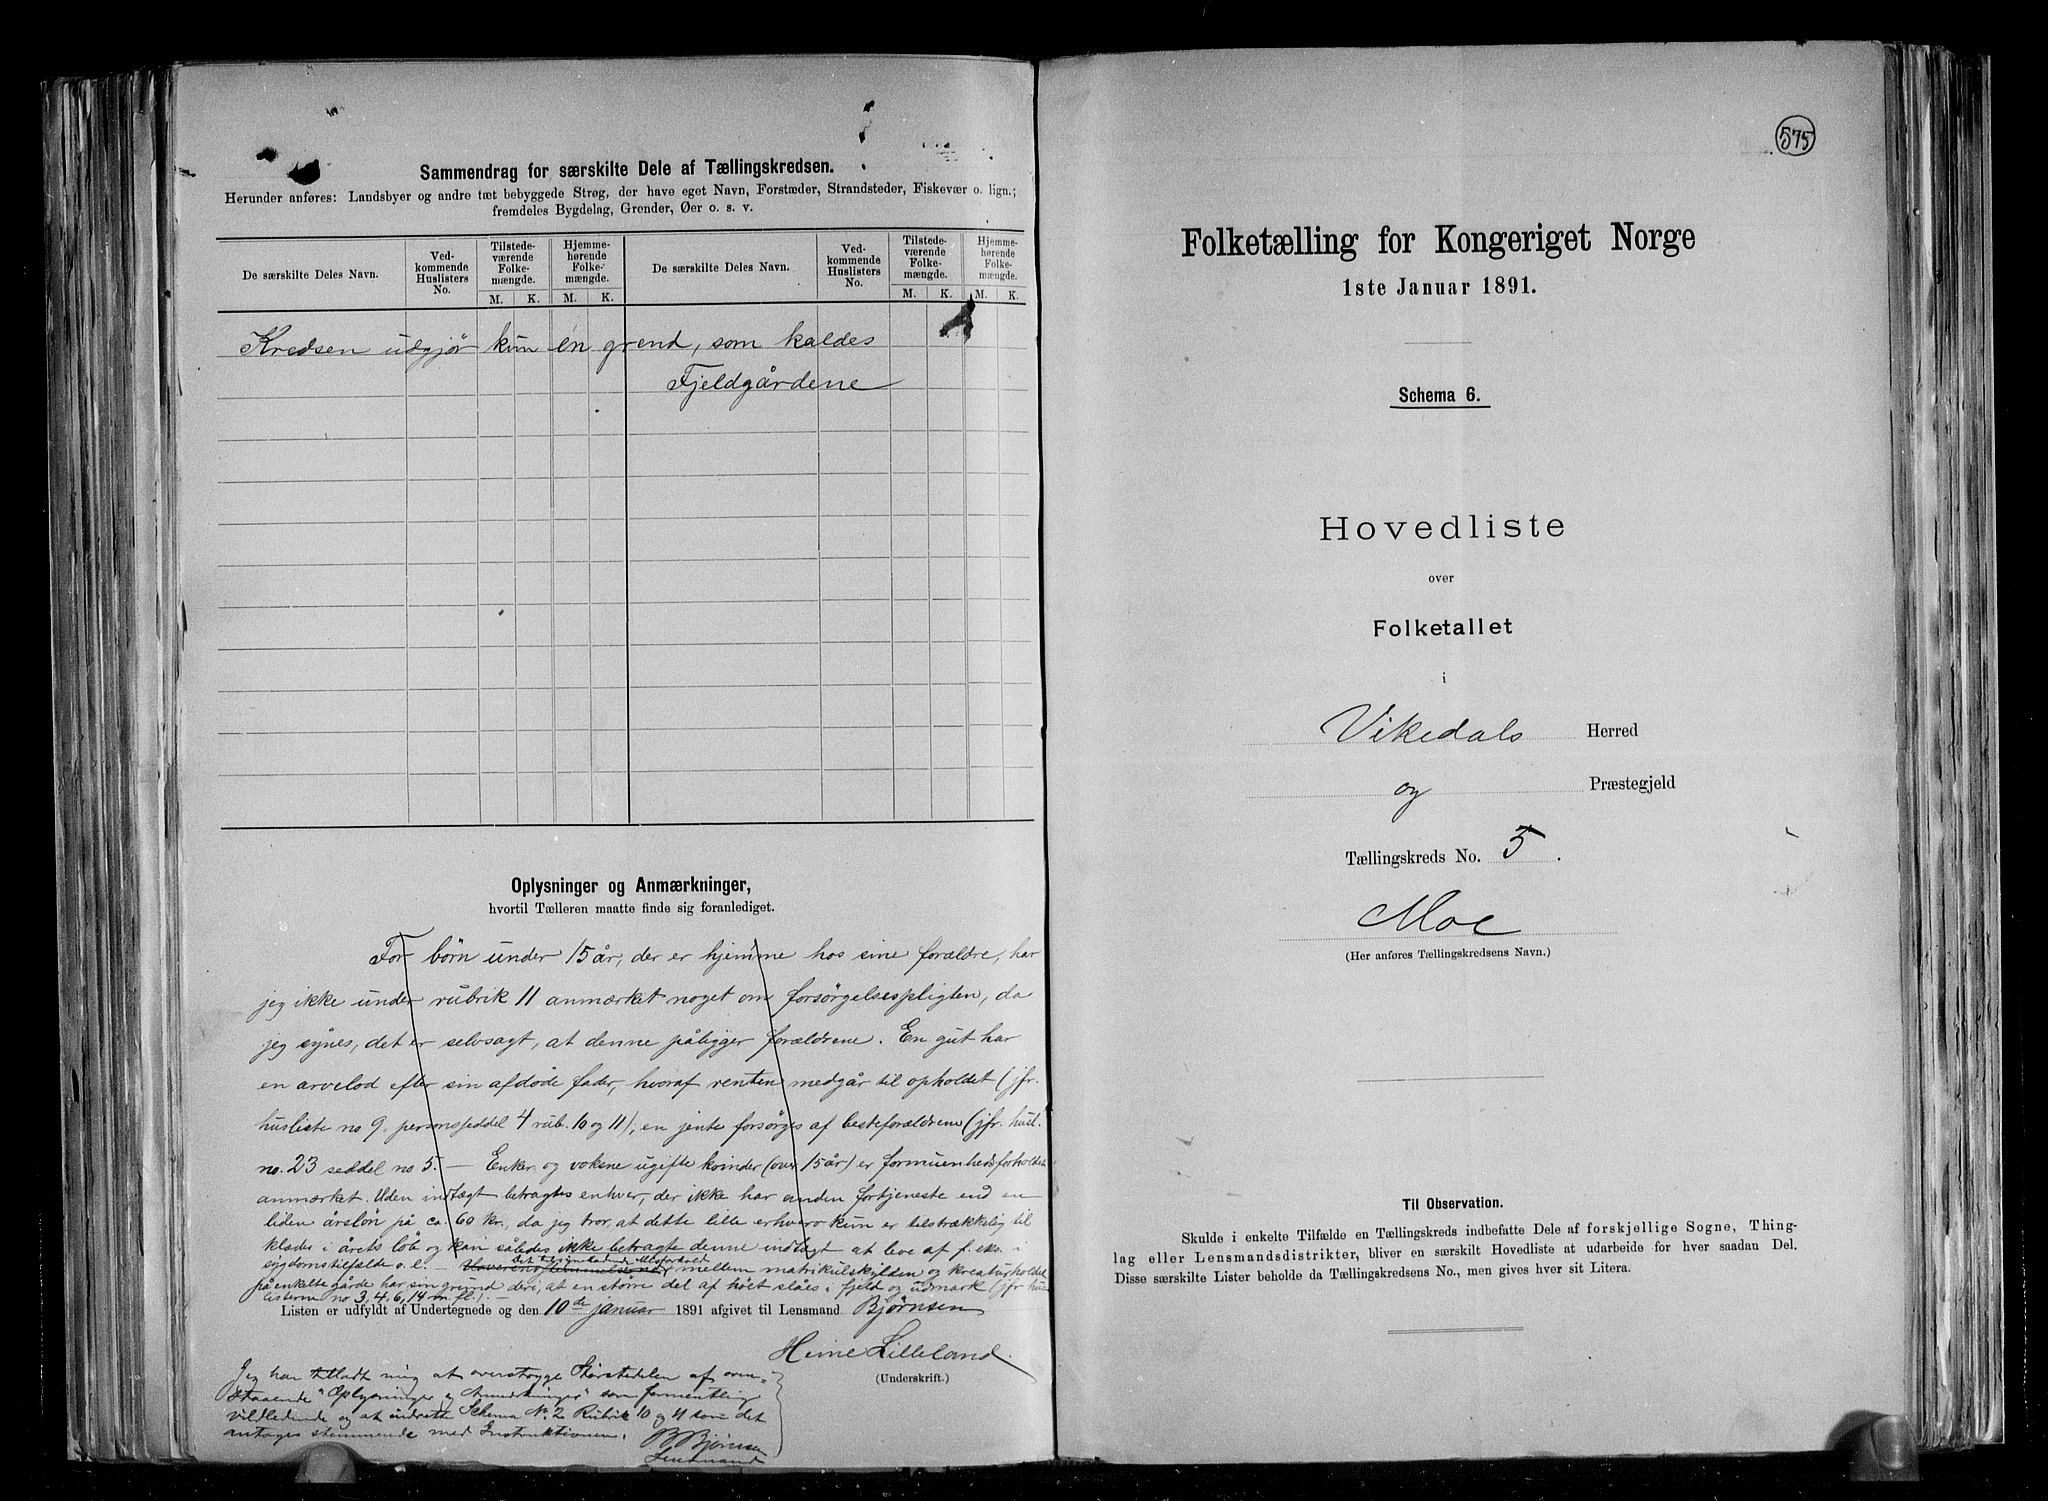 Sammendrag for særskilte Dele af Tællingskredsen.
Herunder anføres: Landsbyer og andre tæt bebyggede Strøg, der have eget Navn, Forstæder, Strandsteder, Fiskevær o. lign.;
fremdeles Bygdelag, Grender, Øer o. s. v.
De særskilte Deles Navn.
Ved-
kommende
Huslisters
No.
Tilstede-
værende
Folke-
mængde.
M. K.
Hjemme-
hørende
Folke-
mængde.
M. K.
De særskilte Deles Navn.
Ved-
kommende
Huslisters
No.
Tilstede-
værende
Folke-
mængde.
M. K.
Hjemme-
hørende
Folke-
mængde.
M. K.
Kredsen udgjør kun én grend, som kaldes
Fjeldgårdene
Oplysninger og Anmærkninger,
hvortil Tælleren maatte finde sig foranlediget.
For børn under 15 år, der er hjemme hos sine forældre, har
jeg ikke under rubrik 11 anmærket noget om forsørgelsespligten, da
jeg synes, det er selvsagt, at denne påligger forældrene. En gut har
en arvelod efter sin afdøde fader, hvoraf renten medgår til opholdet (jfr.
husliste no 9. personsseddel 4 rub. 10 og 11), en jente forsørges af besteforældrene (jfr. husl.
no. 23 seddel no 5. — Enker og voksne ugifte kvinder (over 15 år) er formuenhedsforholdet
anmærket. Uden indtægt betragtes enhver, der ikke har anden fortjeneste end en
liden årsløn på ca. 60 kr., da jeg tror, at dette lille erhverv kun er tilstrækkelig til
klæder i årets løb og kan således ikke betragte denne indtægt at leve af f. eks. i
sygdomstilfælde o. l. — mellem matrikulskylden og kreaturholdet
på enkelte gårde har sin grund deri, at en større del af høet slåes i fjeld og udmark (jfr hus
listerne no 3, 4, 6, 14 m. fl.). —
Listen er udfyldt af Undertegnede og den 10de januar 1891 afgivet til Lensmand Bjørnsen
Heine Lilleland
(Underskrift.)
Jeg har tilladt mig at overstryge Størstedelen af oven-
staaende "Oplysninger og Anmærkninger" som formentlig
vildledende og at indrette Schema No. 2 Rubrik 10 og 11 som det
antages stemmende med Instruktionen.
B Bjørnsen
Lensmand
575
Folketælling for Kongeriget Norge
1ste Januar 1891.
Schema 6.
Hovedliste
over
Folketallet
i
Vikedals Herred
og Præstegjeld
Tællingskreds No. 5.
Moe
(Her anføres Tællingskredsens Navn.)
Til Observation.
Skulde i enkelte Tilfælde en Tællingskreds indbefatte Dele af forskjellige Sogne, Thing-
lag eller Lensmandsdistrikter, bliver en særskilt Hovedliste at udarbeide for hver saadan Del.
Disse særskilte Lister beholde da Tællingskredsens No., men gives hver sit Litera.